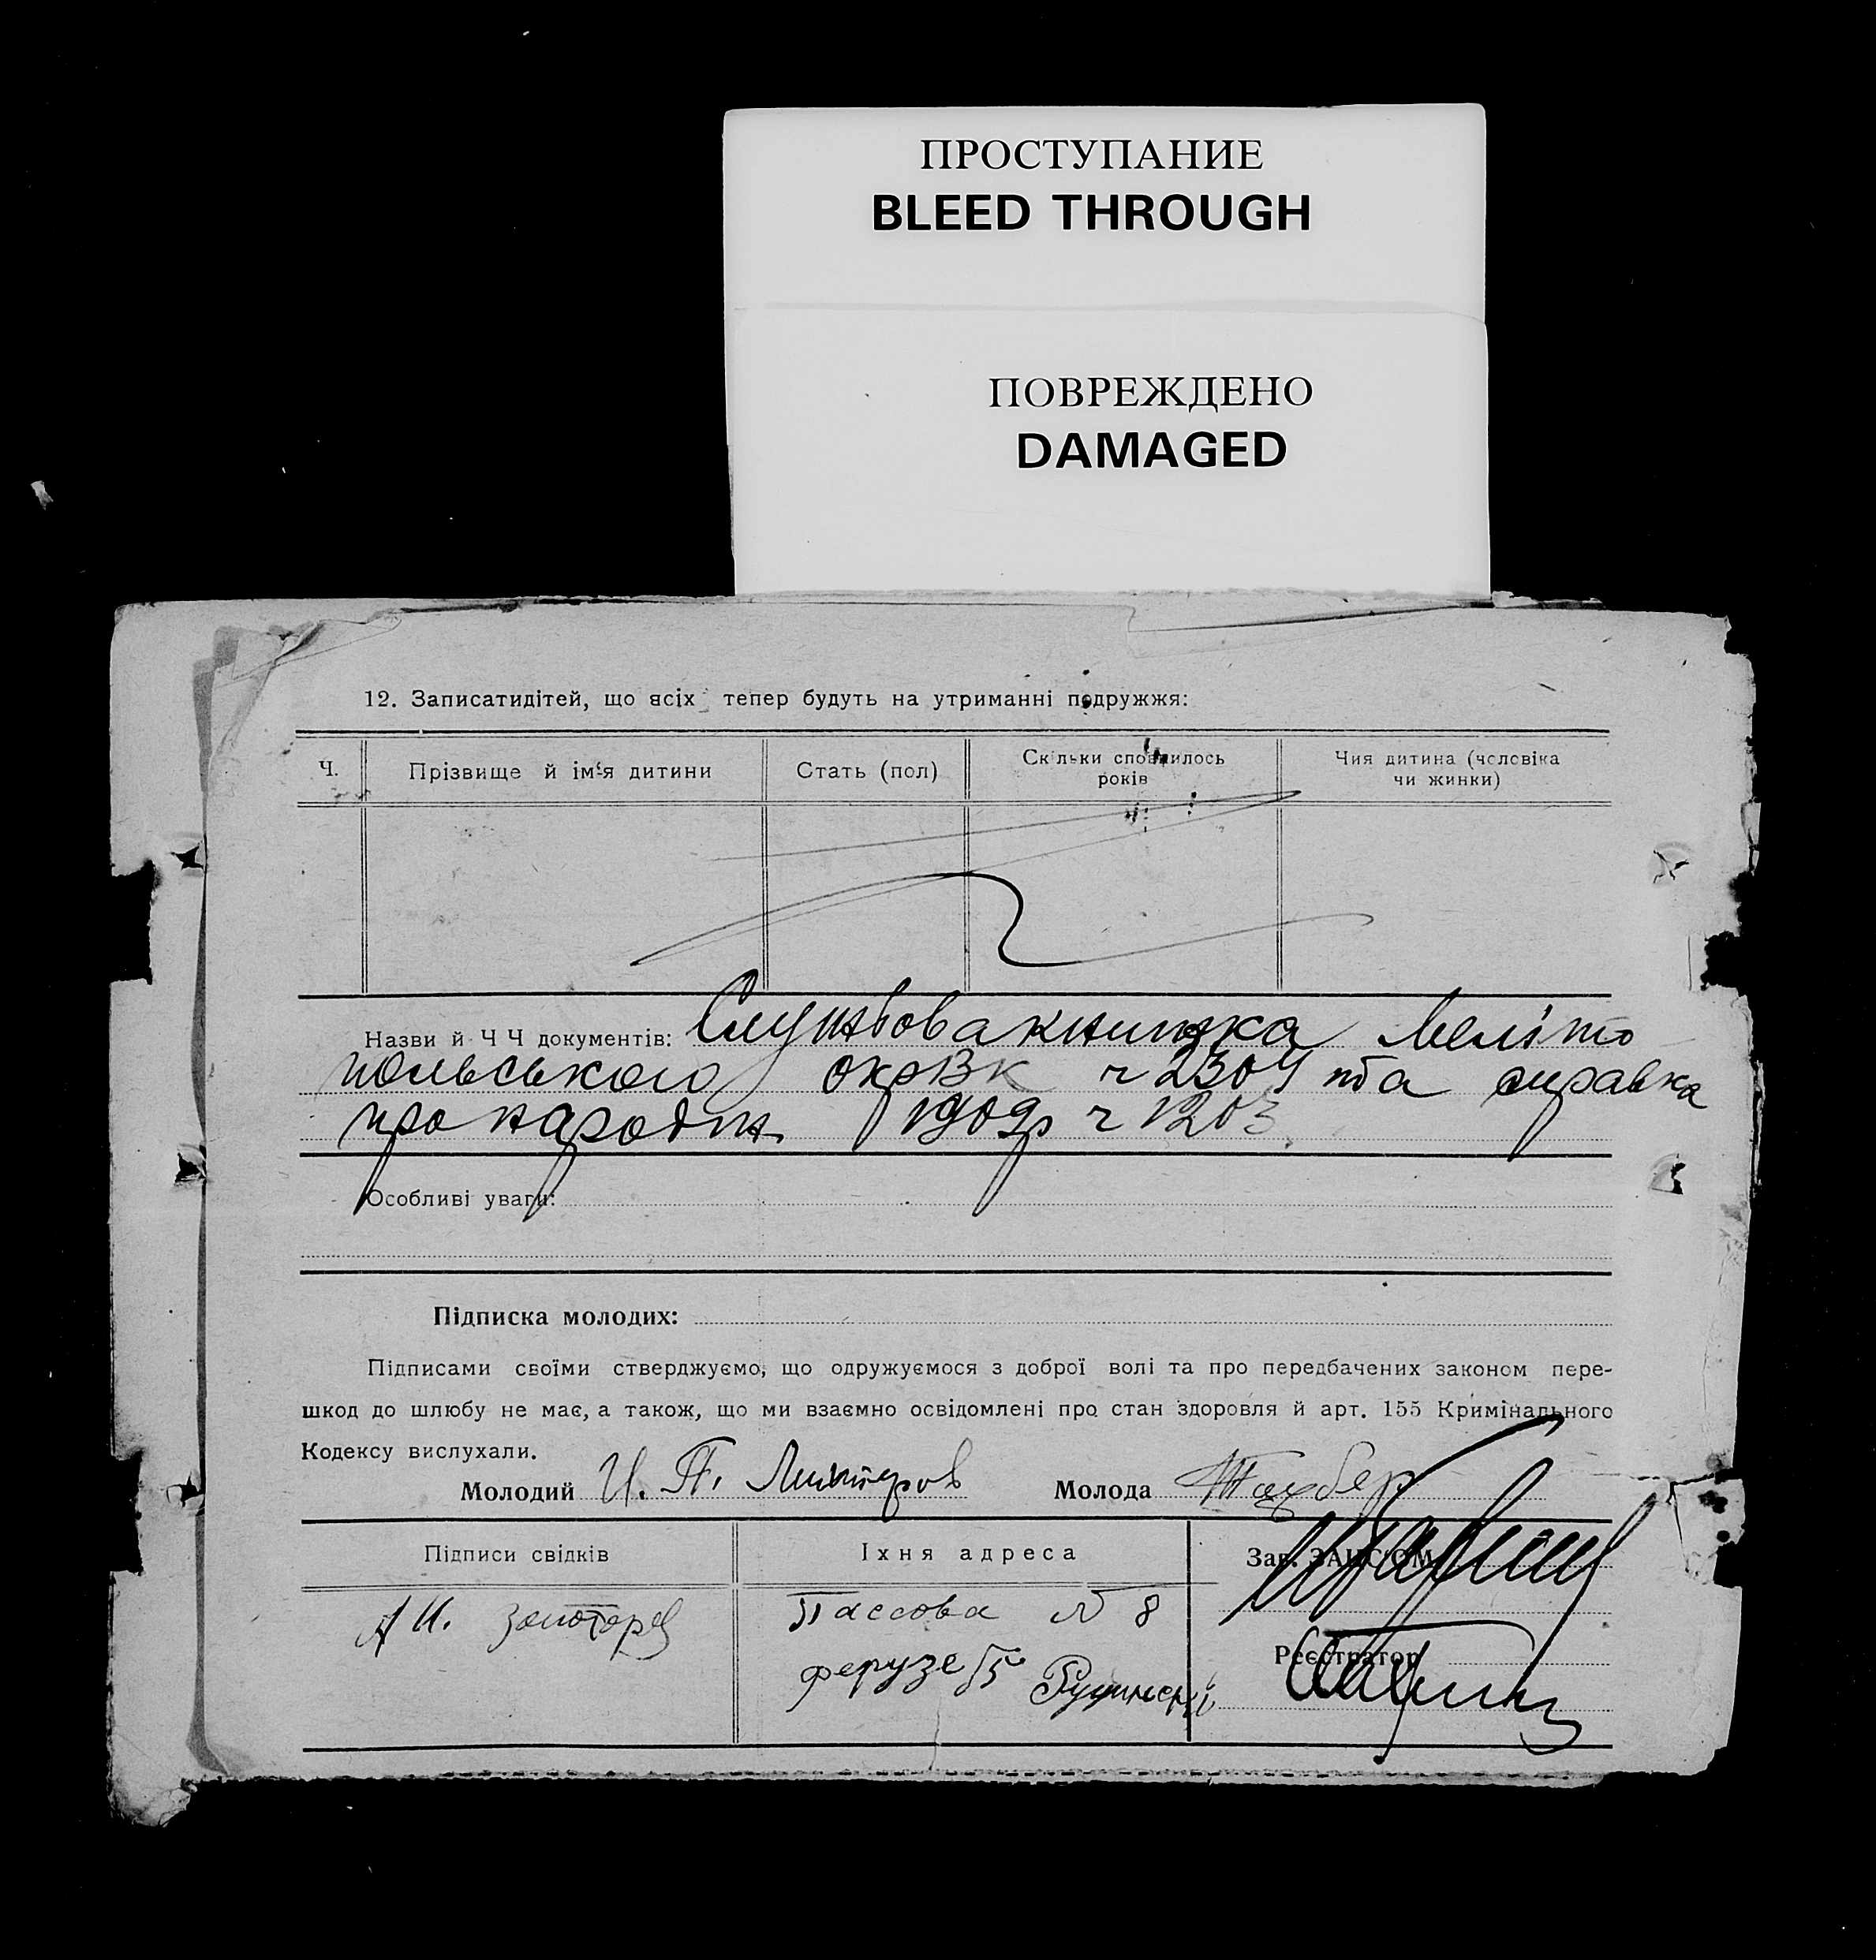 ПРОСТУПАНИЕ
BLEED THROUGH
ПОВРЕЖДЕНО
DAMAGED
12. Записатидітей, що всіх тепер будуть на утриманні подружжя:
Ч.
Прізвище й ім'я дитини
Стать (пол)
Скільки сповнилось
років
Чия дитина (чоловіка
чи жинки)
Назви й Ч Ч документів: Службова книжка Меліто
польського окрВК ч 2304 та справка
про народж 1909р ч 1203
Особливі уваги:
Підписка молодих:
Підписами своїми стверджуємо, що одружуємося з доброї волі та про передбачених законом пере-
шкод до шлюбу не має, а також, що ми взаємно освідомлені про стан здоровля й арт. 155 Кримінального
Кодексу вислухали.
Молодий И. П.
Молода
Підписи свідків
Іхня адреса
Зав. ЗАПС'ОМ
А И. Золотарев
№ 8
Реєстратор